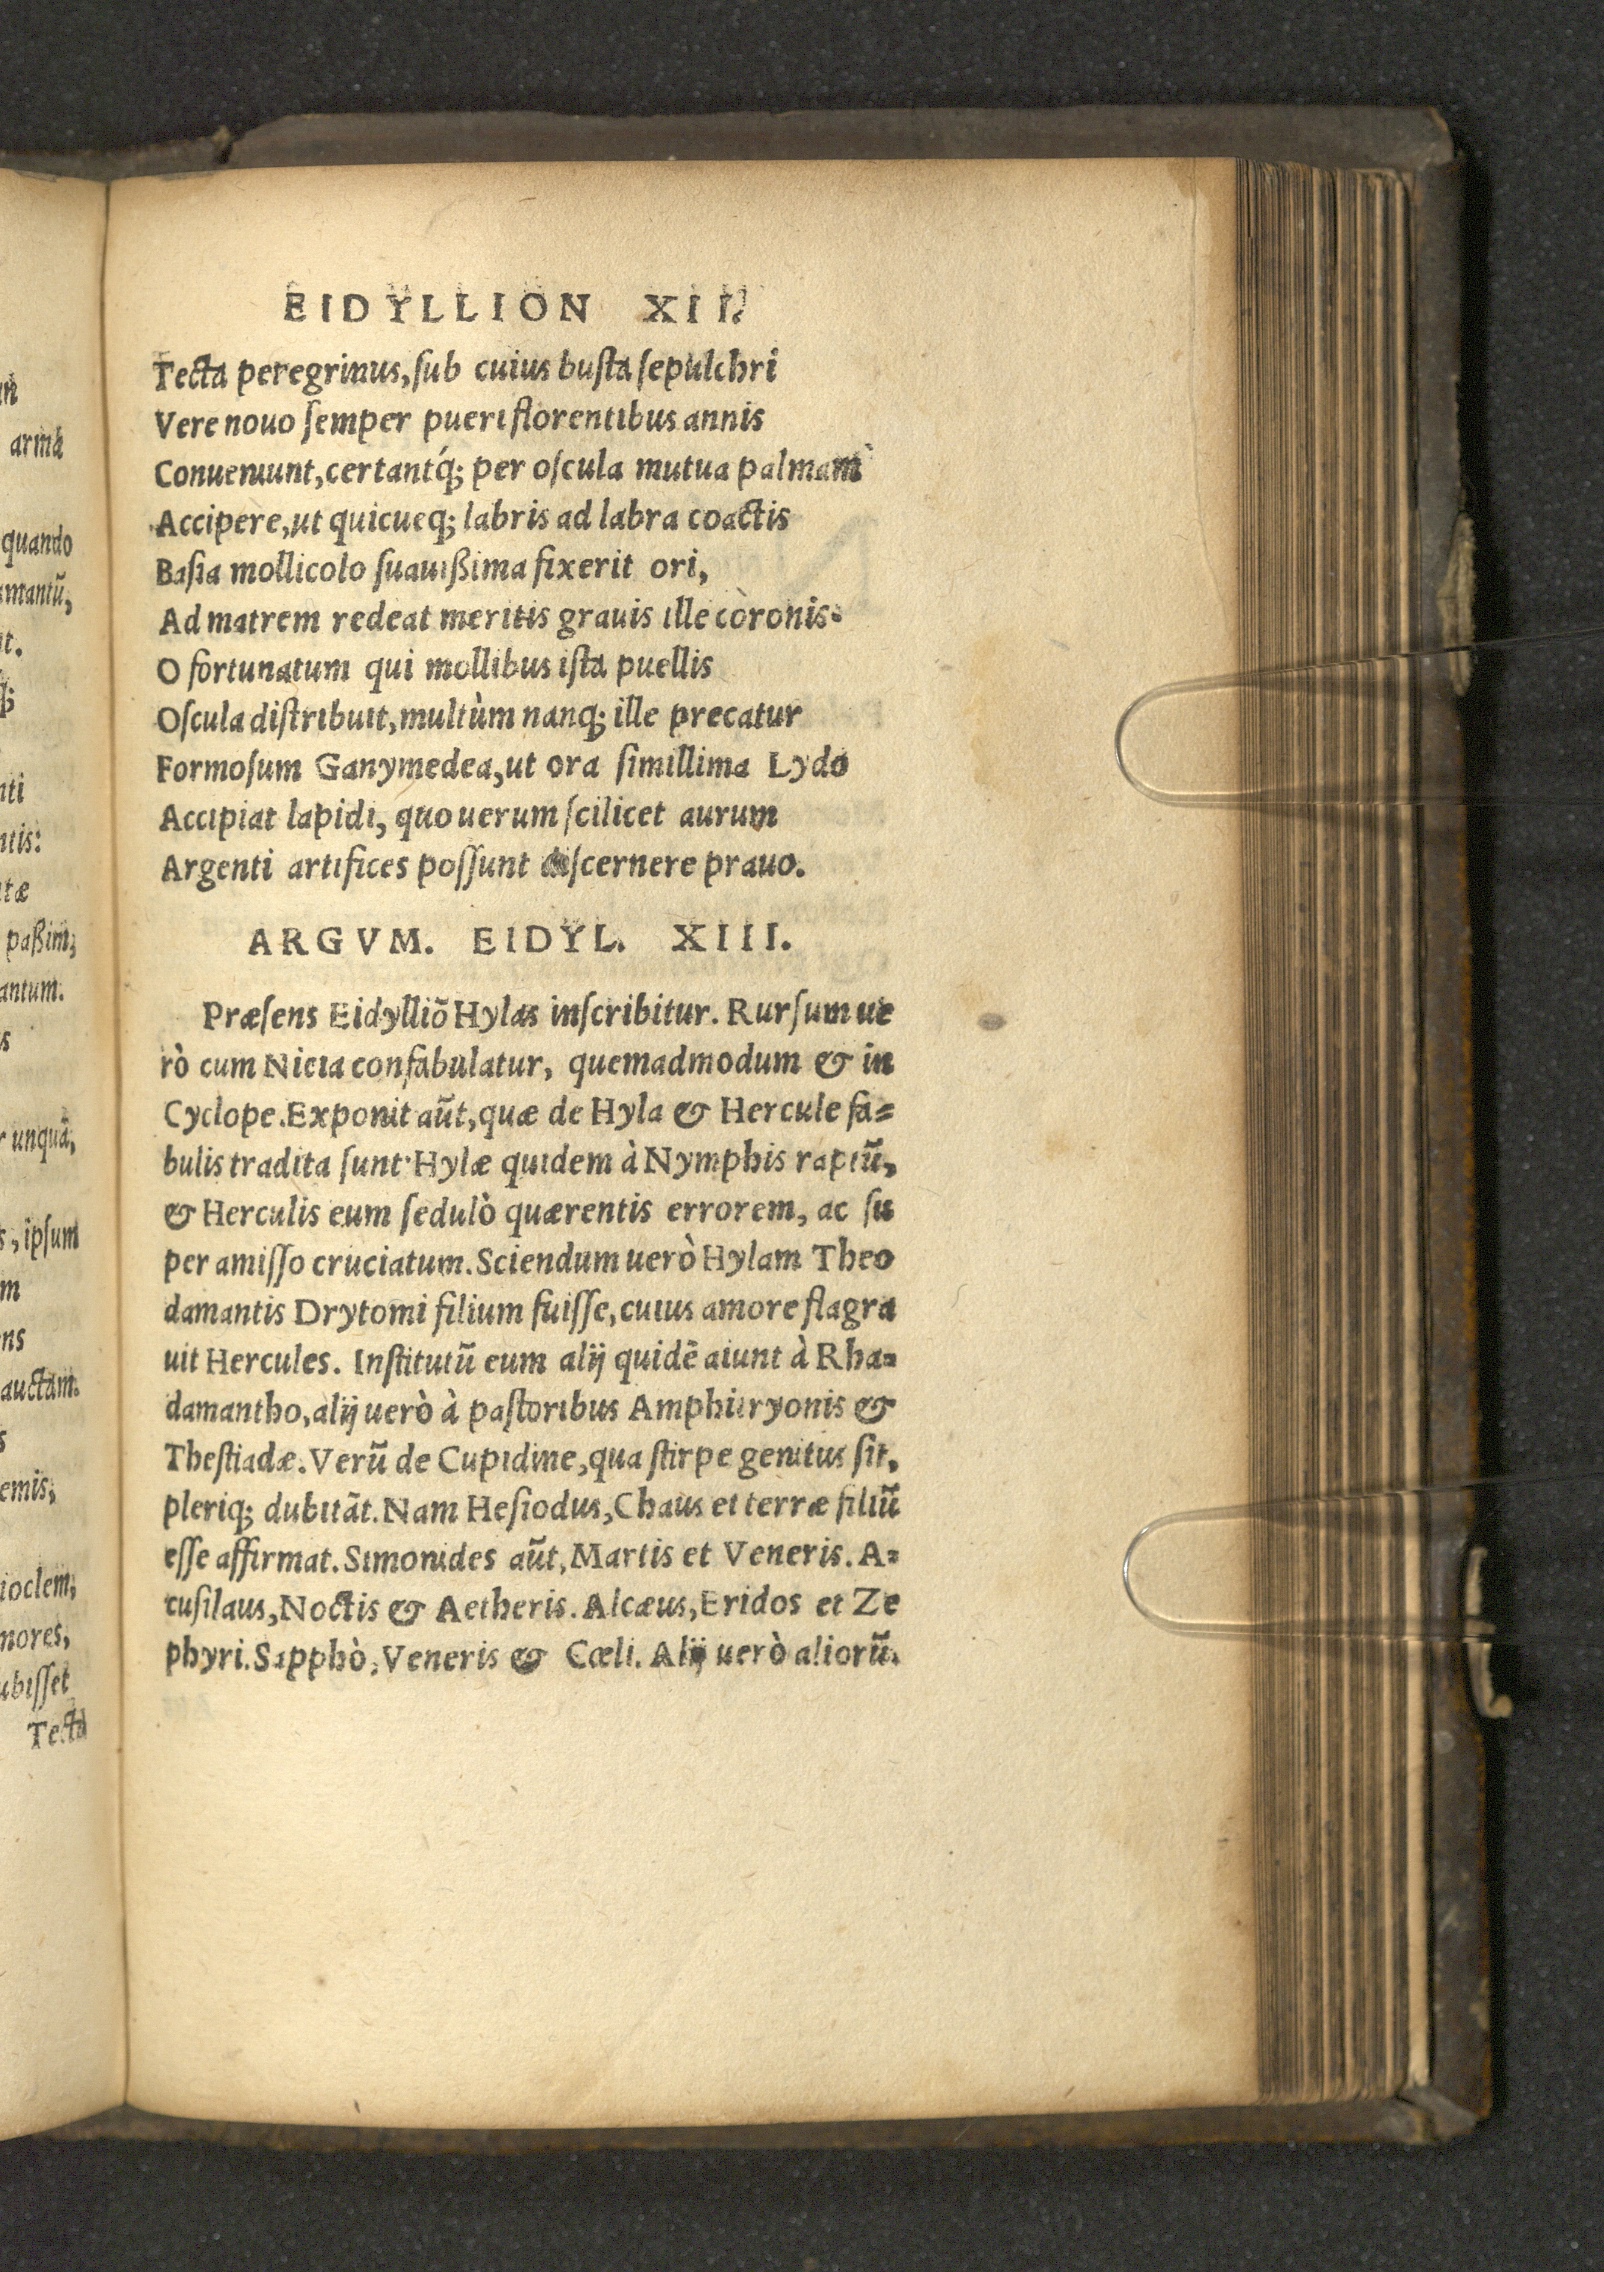 EIDYLLION XII.
Tecta peregrinus, ſub cuius buſta ſepulchri
Vere nouo ſemper pueri florentibus annis
Conueniunt, certantq́; per oſcula mutua palmam
Accipere, ut quicueq; labris ad labra coactis
Baſia mollicolo ſuauißima fixerit ori,
Ad matrem redeat meritis grauis ille coronis.
O fortunatum qui mollibus iſta puellis
Oſcula diſtribuit, multùm nanq; ille precatur
Formoſum Ganymedea, ut ora ſimillima Lydo
Accipiat lapidi, quo uerum ſcilicet aurum
Argenti artifices poſſunt diſcernere prauo.
ARGVM. EIDYL. XIII.
Præſens Eidylliõ Hylas inſcribitur. Rurſum ue
rò cum Nicia confabulatur, quemadmodum & in
Cyclope. Exponit aũt, quæ de Hyla & Hercule fa=
bulis tradita ſunt: Hylæ quidem à Nymphis raptũ,
& Herculis eum ſedulò quærentis errorem, ac ſu
per amiſſo cruciatum. Sciendum uerò Hylam Theo
damantis Drytomi filium fuiſſe, cuius amore flagra
uit Hercules. Inſtitutũ eum alij quidẽ aiunt à Rha=
damantho, alij uerò à paſtoribus Amphitryonis &
Theſtiadæ. Verũ de Cupidine, qua ſtirpe genitus ſit,
pleriq; dubitãt. Nam Heſiodus, Chaus et terræ filiũ
eſſe affirmat. Simonides aũt, Martis et Veneris. A=
cuſilaus, Noctis & Aetheris. Alcæus, Eridos et Ze
phyri. Sapphò, Veneris & Cœli. Alij uerò aliorũ.
arma
quando
amantũ,
paßim;
antum.
r unquã,
s, ipſum
auctam.
ioclem,
mores,
ubiſſet
Tecta